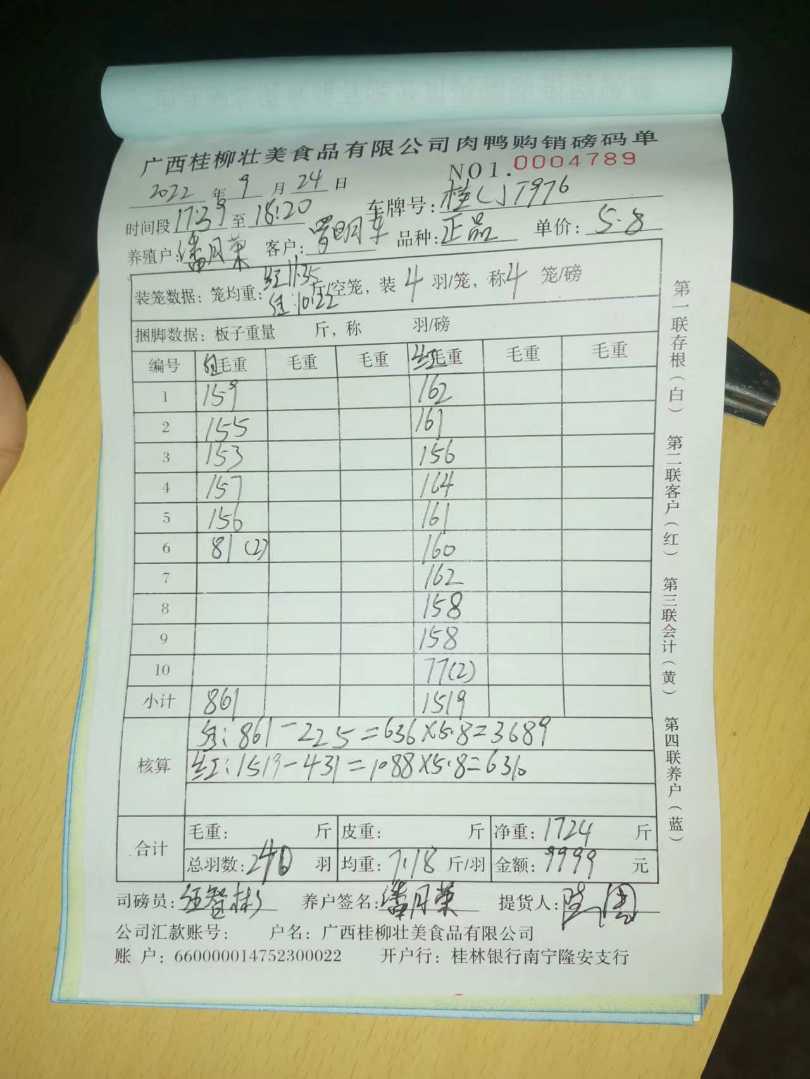 广西桂柳壮美食品有限公司肉鸭购销磅码单
NO1.0004789
2022 年 9 月 24 日
时间段 17:39 至 18:20 车牌号: 桂 JT976
养殖户: 潘月荣 客户: 罗明车 品种: 正品 单价: 5.8
装笼数据: 笼均重: 红11.35 斤/空笼, 装 4 羽/笼, 称 4 笼/磅
10.22
捆脚数据: 板子重量 斤, 称 羽/磅
编号 毛重 毛重 毛重 红毛重 毛重 毛重
1 159 162
2 155 161
3 153 156
4 157 164
5 156 161
6 81(2) 160
7 162
8 158
9 158
10 77(2)
小计 861 1519
核算
861-225=636×5.8=3689
红:1519-431=1088×5.8=6310
合计
毛重: 斤 皮重: 斤 净重: 1724 斤
总羽数: 240 羽 均重: 7.18 斤/羽 金额: 9999 元
司磅员: 养户签名: 潘月荣 提货人:
公司汇款账号: 户名: 广西桂柳壮美食品有限公司
账 户: 660000014752300022 开户行: 桂林银行南宁隆安支行
第一联存根(白) 第二联客户(红) 第三联会计(黄) 第四联养户(蓝)